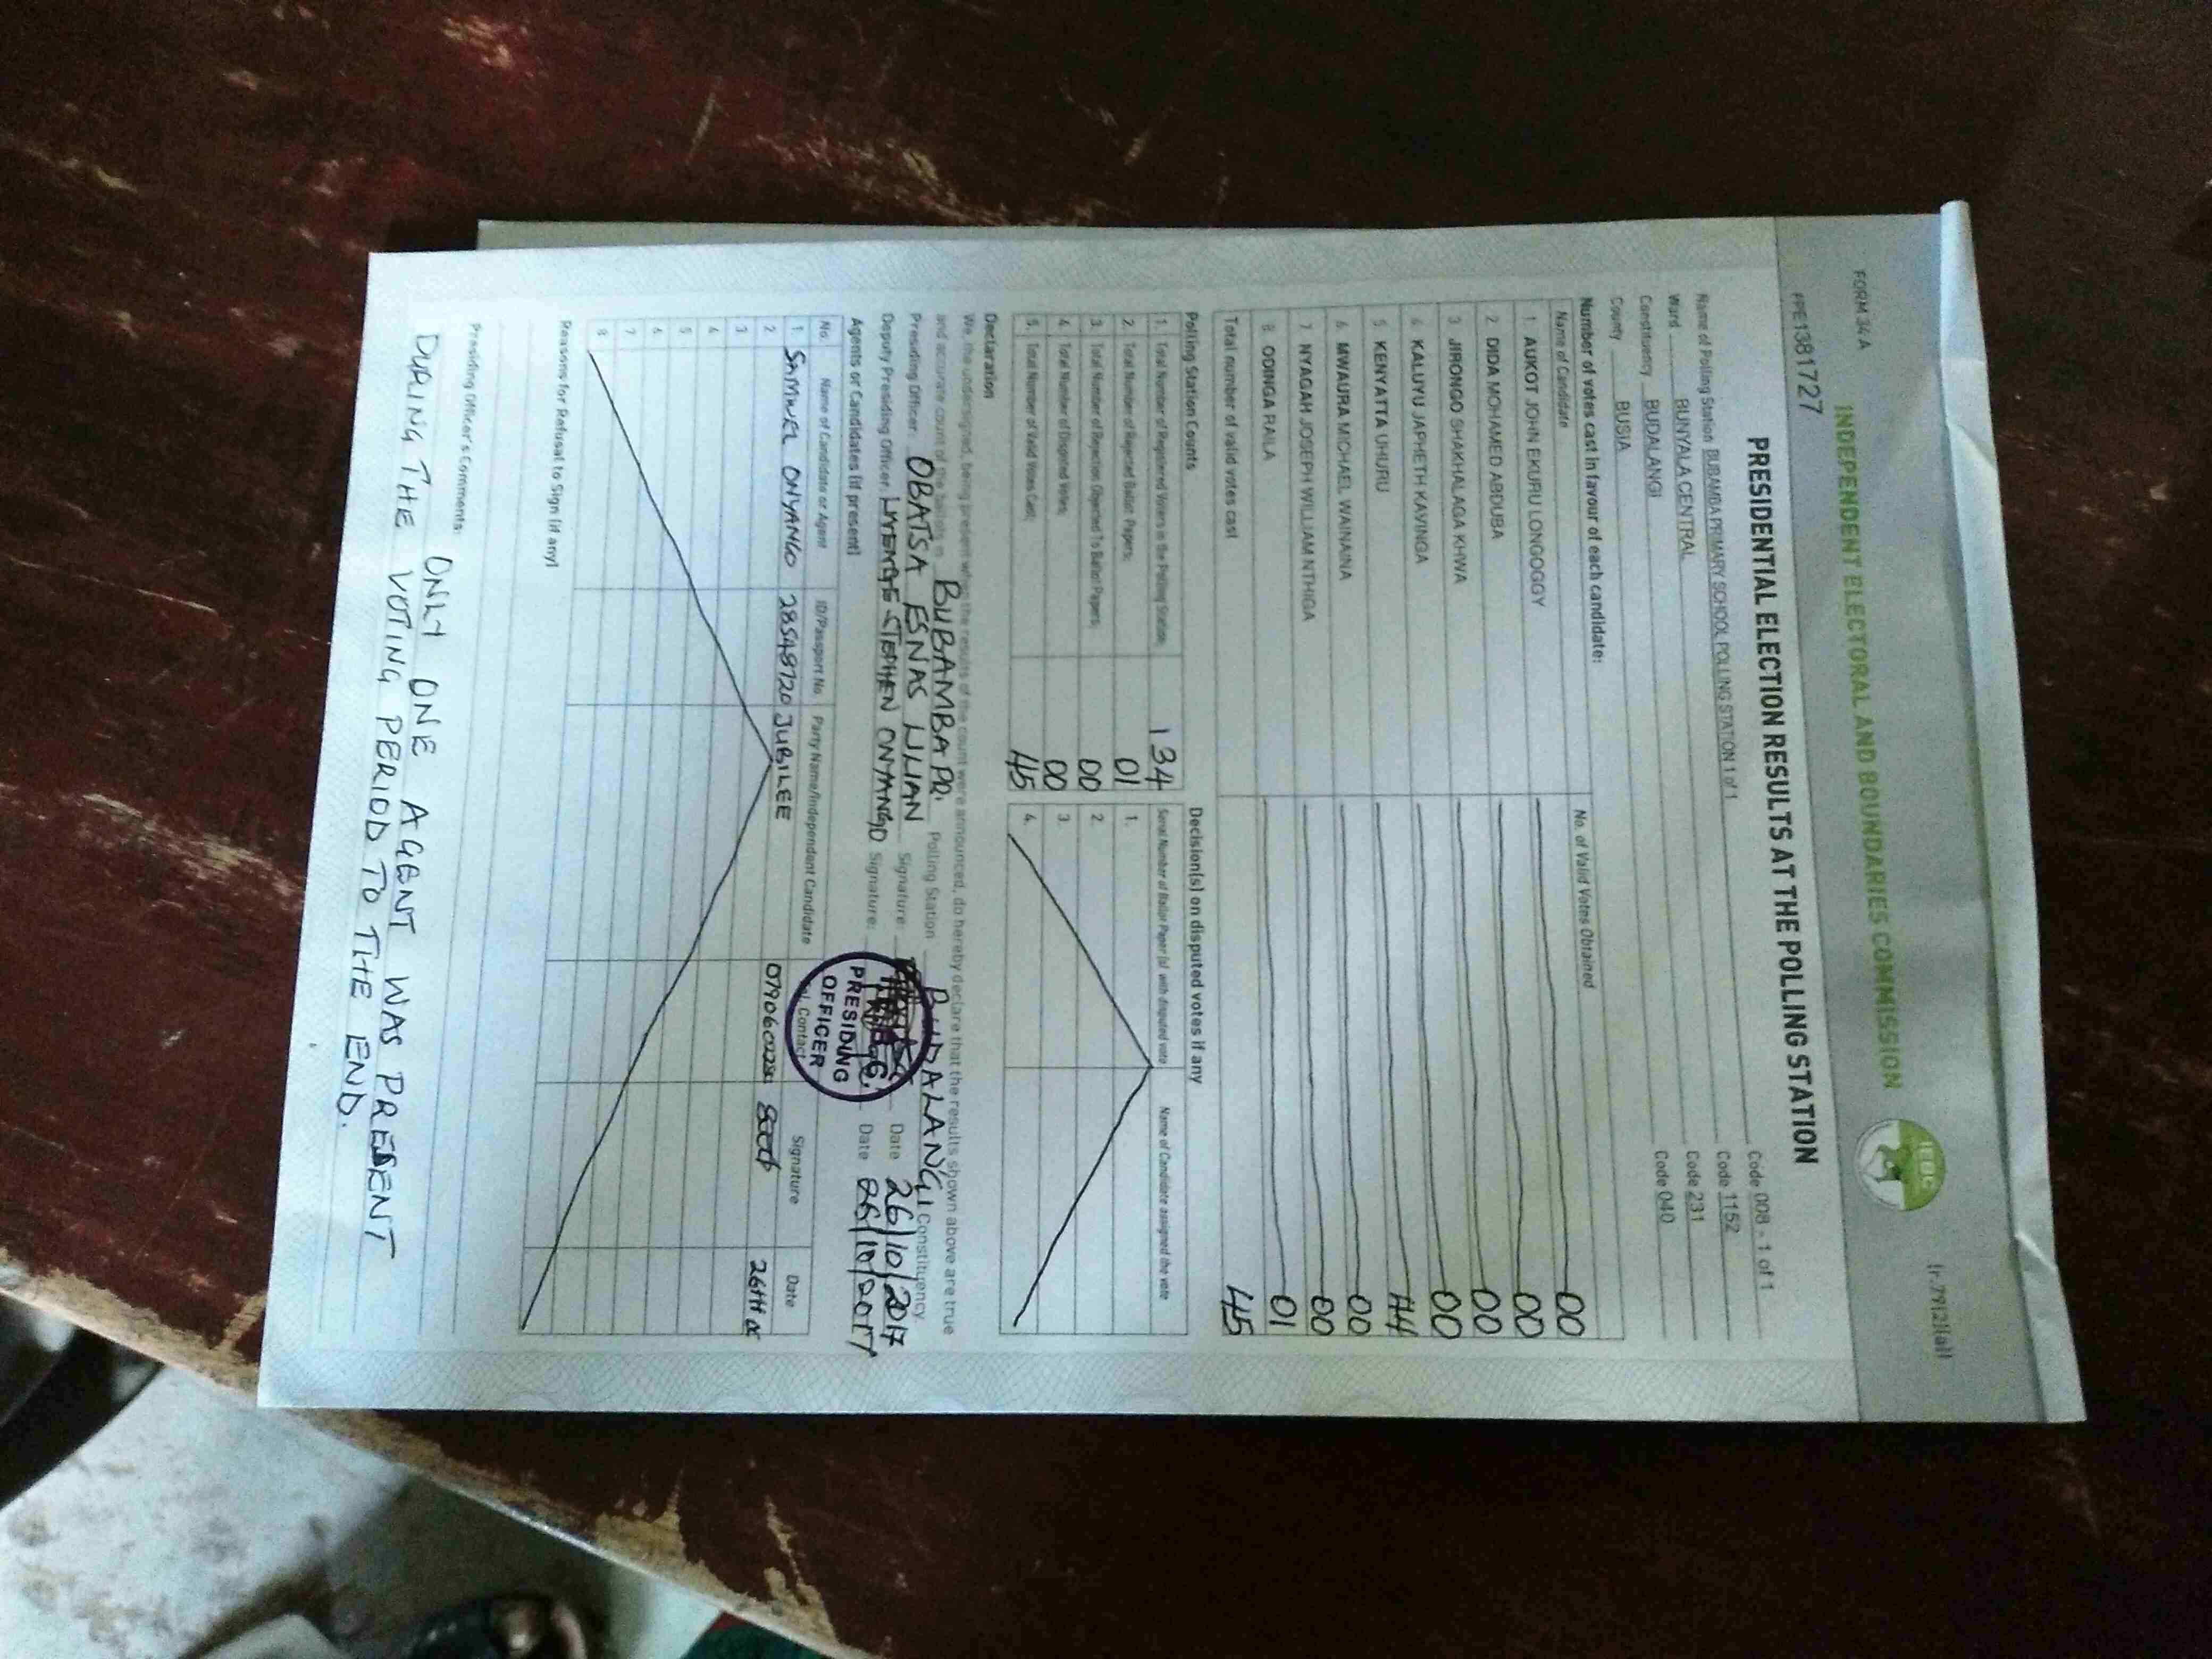 FORM 34A
(r.79(2)(a))
INDEPENDENT ELECTORAL AND BOUNDARIES COMMISSION
IEBC
PPE1381727
PRESIDENTIAL ELECTION RESULTS AT THE POLLING STATION
Name of Polling Station BUBAMBA PRIMARY SCHOOL POLLING STATION 1 of 1 Code 008 - 1 of 1
Ward BUNYALA CENTRAL Code 1152
Constituency BUDALANGI Code 231
County BUSIA Code 040
Number of votes cast in favour of each candidate:
Name of Candidate No. of Valid Votes Obtained
1. AUKOT JOHN EKURU LONGOGGY 00
2. DIDA MOHAMED ABDUBA 00
3. JIRONGO SHAKHALAGA KHWA 00
4. KALUYU JAPHETH KAVINGA 00
5. KENYATTA UHURU 44
6. MWAURA MICHAEL WAINAINA 00
7. NYAGAH JOSEPH WILLIAM NTHIGA 00
8. ODINGA RAILA 01
Total number of valid votes cast 45
Polling Station Counts
1. Total Number of Registered Voters in the Polling Station: 134
2. Total Number of Rejected Ballot Papers: 01
3. Total Number of Rejection Objected To Ballot Papers: 00
4. Total Number of Disputed Votes: 00
5. Total Number of Valid Votes Cast: 45
Decision(s) on disputed votes if any
Serial Number of Ballot Paper (s) with disputed vote Name of Candidate assigned the vote
1.
2.
3.
4.
Declaration
We the undersigned, being present when the results of the count were announced, do hereby declare that the results shown above are true
and accurate count of the ballots in BUBAMBA PR. Polling Station BUDALANGI Constituency
Presiding Officer: OBATSA ESNAS LILIAN Signature: Date 26/10/2017
Deputy Presiding Officer STEPHEN ONYANGO Signature: Date 26/10/2017
PRESIDING
OFFICER
Agents or Candidates (if present)
No. Name of Candidate or Agent ID/Passport No. Party Name/Independent Candidate Contact Signature Date
1. SAMWEL ONYANGO 28548720 JUBILEE
2
3
4
5
6
7
8
Reasons for Refusal to Sign (if any)
Presiding Officer's Comments:
ONLY ONE AGENT WAS PRESENT
DURING THE VOTING PERIOD TO THE END.